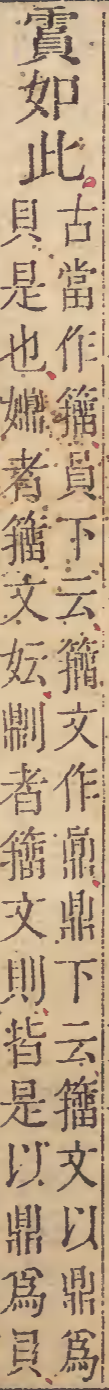 霣如此
古當作籒員下云籒文作鼎鼎下云籒文以鼎爲
貝是也㜏者籒文妘鼎刂者籒文則皆是以鼎爲貝